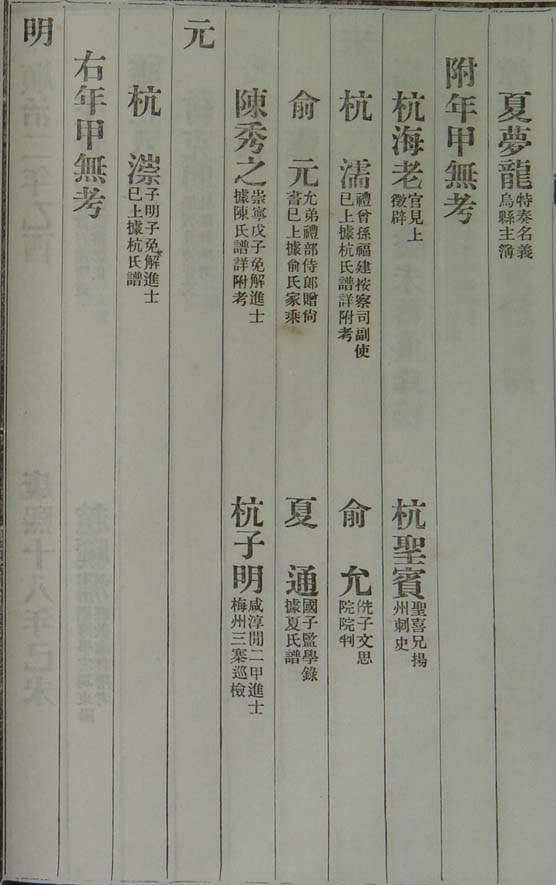 夏夢龍 特奏名義烏縣主簿
附年甲無考
杭海老 官見上徵辟 杭聖賓 聖喜兄揚州刺史
杭濡 禮曾孫福建按察司副使已上據杭氏譜詳附考 俞允 侁子文思院院判
俞元 允弟禮部侍郎贈尙書已上據俞氏家乘 夏通 國子監學錄據夏氏譜
陳秀之 崇寧戊子免解進士據陳氏譜詳附考 杭子明 咸淳閒二甲進士梅州三寨巡檢
元
杭漴 子明子免解進士已上據杭氏譜
右年甲無考
明